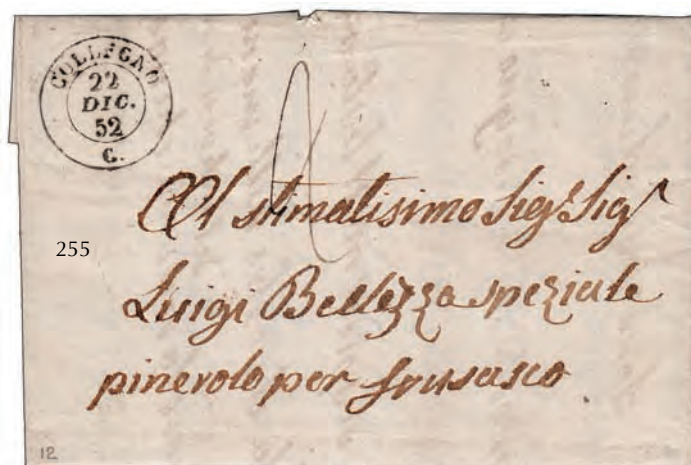 COLLEGNO
22
DIC.
52
C.
Al stimatisimo Sigr Sigr
255
Luigi Bellezza speziale
pinerolo per frusasco
12